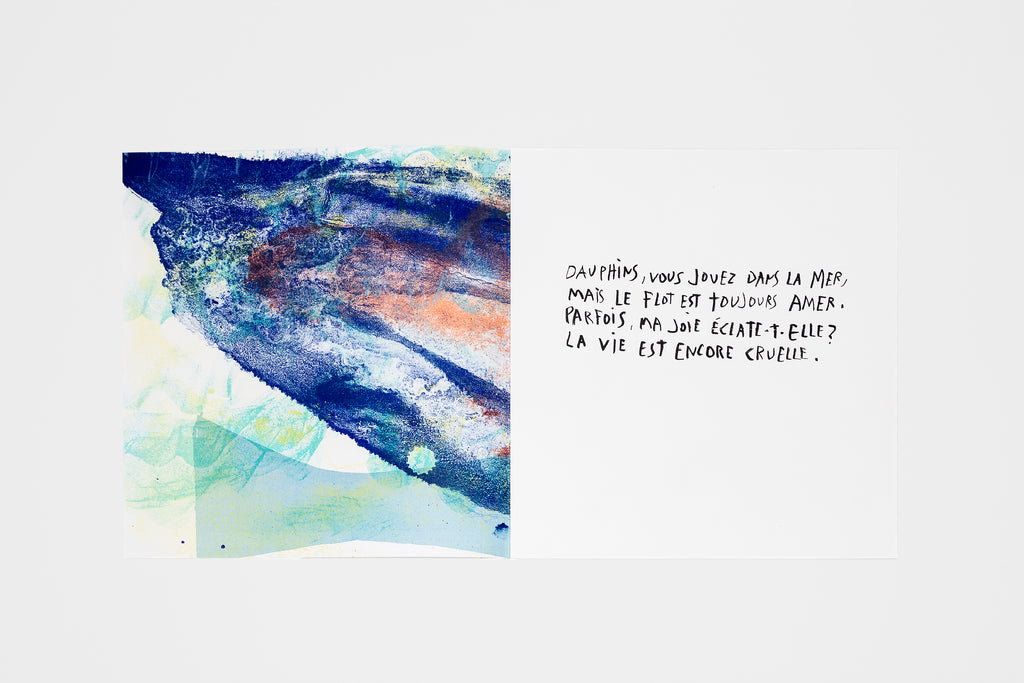 DAUPHINS, VOUS JOUEZ DANS LA MER,
MAIS LE FLOT EST TOUJOURS AMER.
PARFOIS, MA JOIE ÉCLATE-T-ELLE?
LA VIE EST ENCORE CRUELLE.